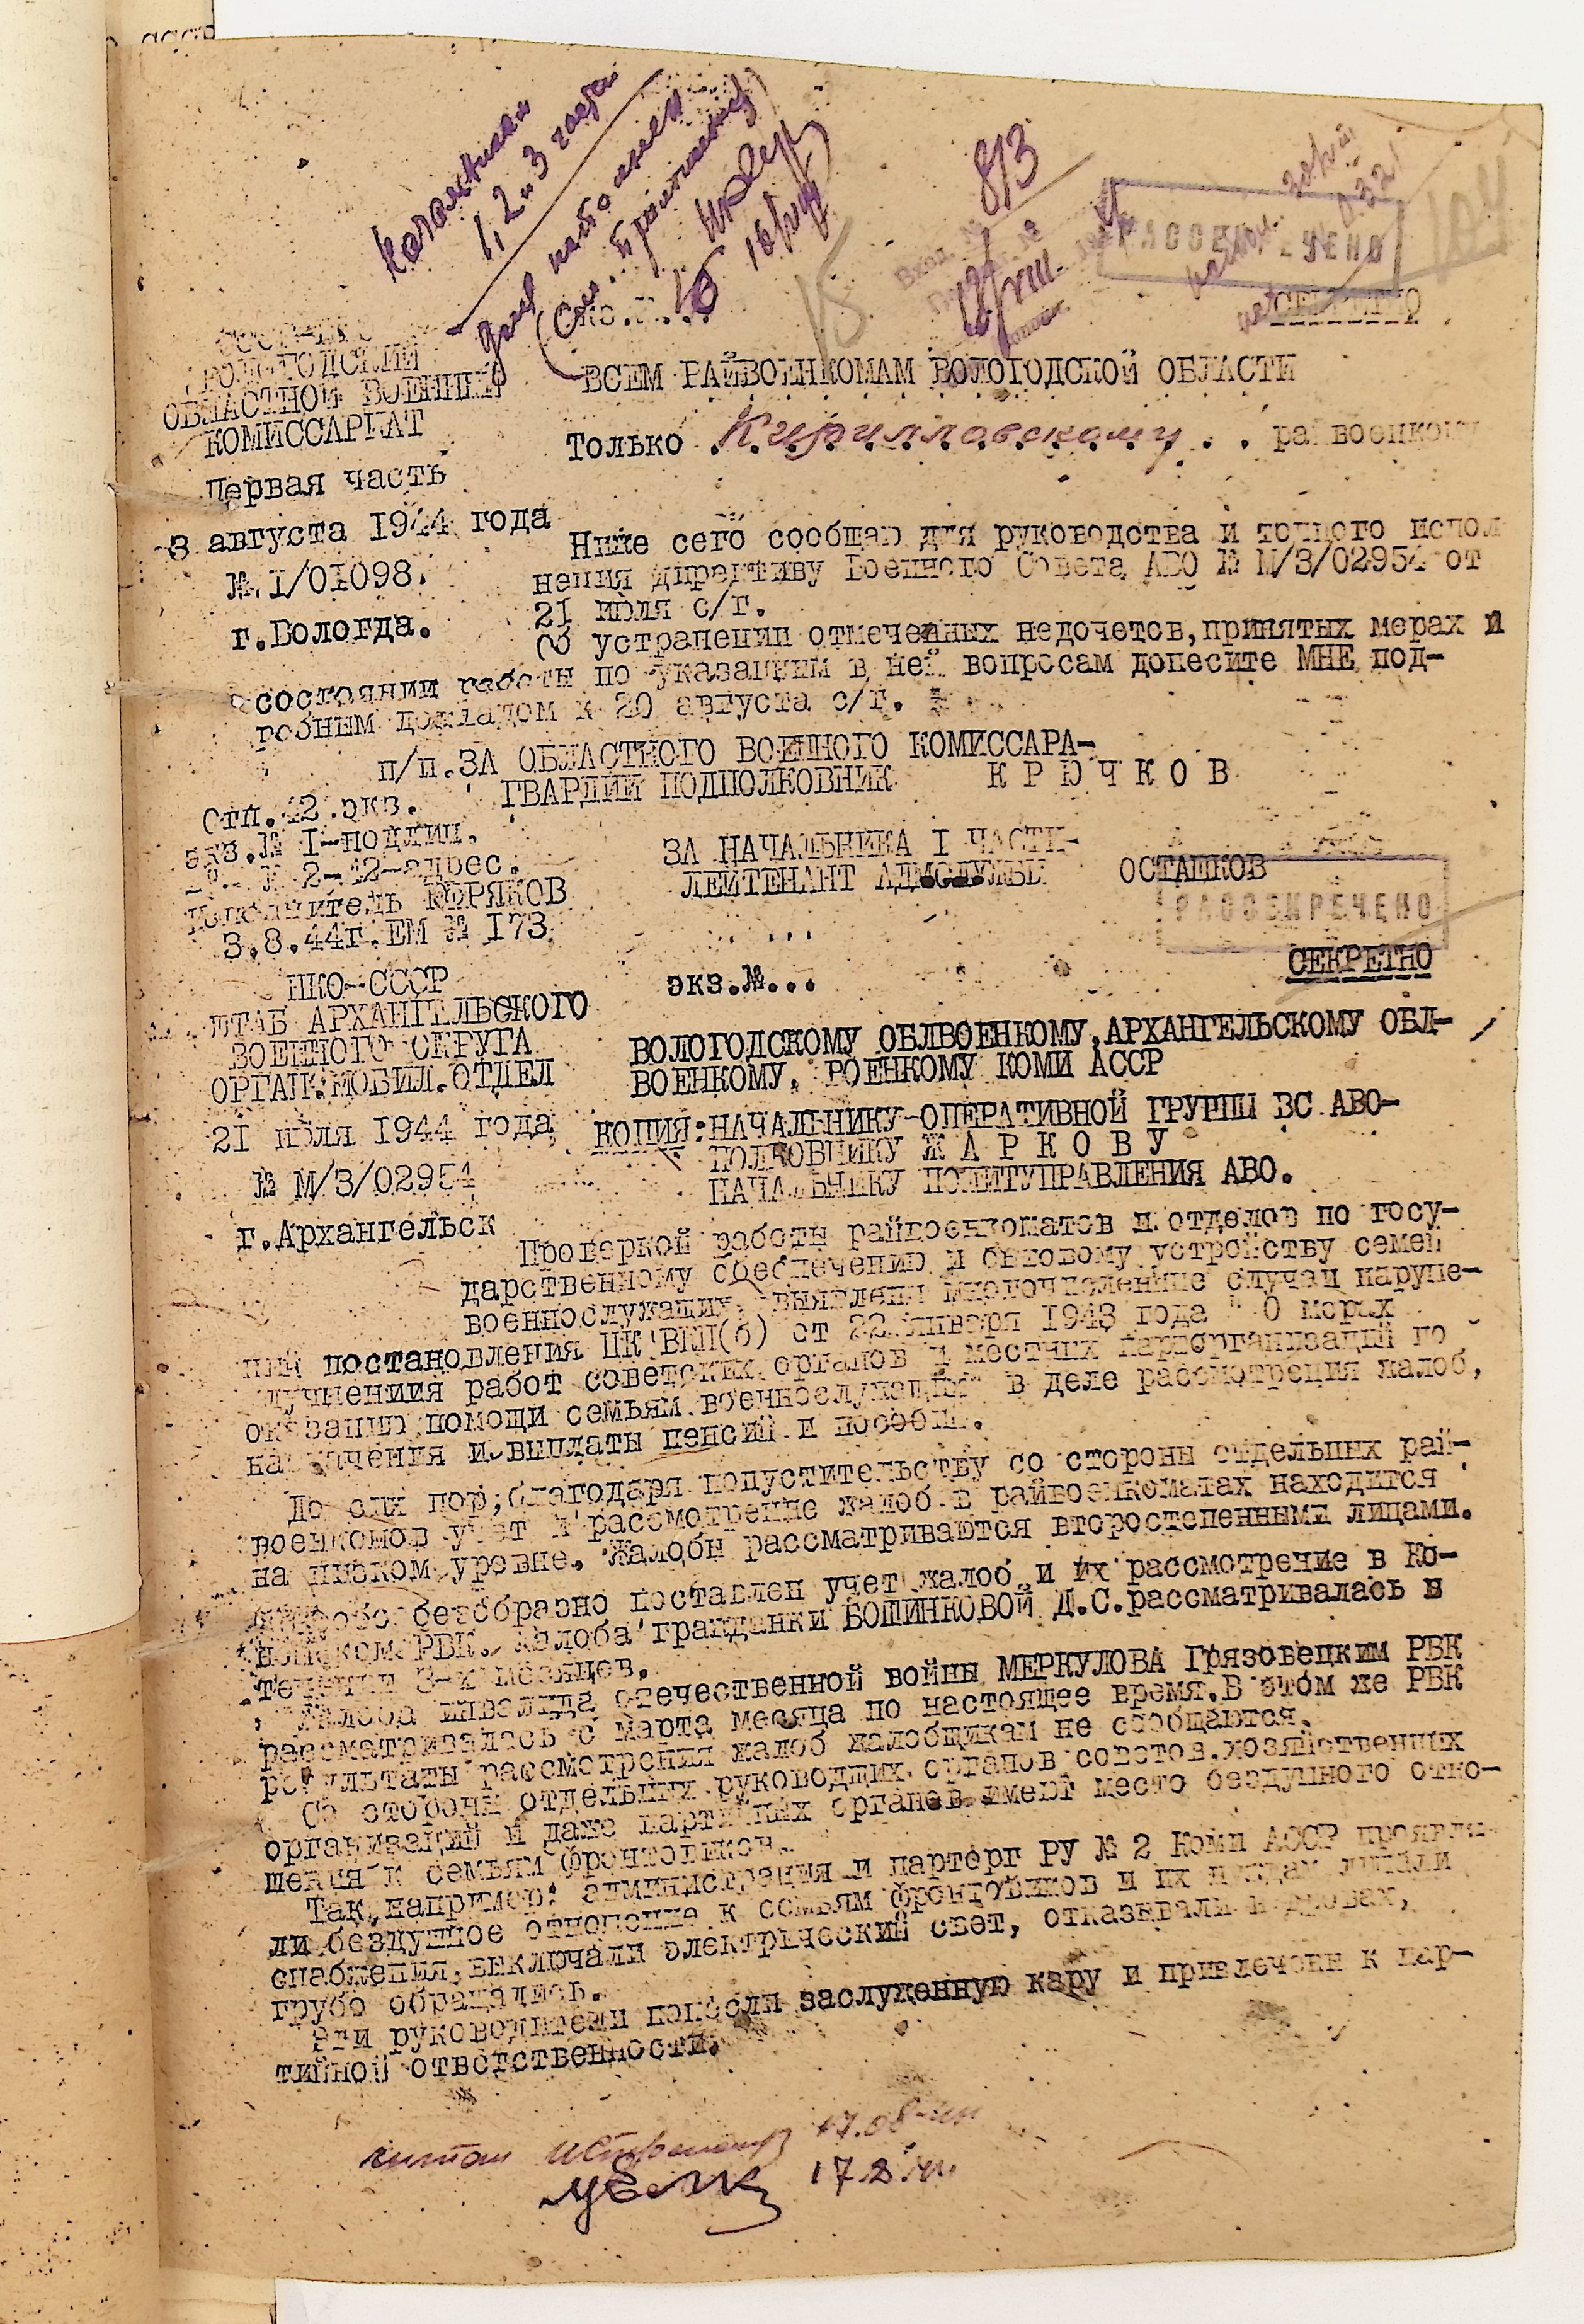 1, 2 и 3 части
813
РАССЕКРЕЧЕНО
СЕКРЕТНО
ВОЛОГОДСКИЙ
ОБЛАСТНОЙ ВОЕННЫЙ
КОМИССАРИАТ
Первая часть
3 августа 1944 года
№.1/01098.
г.Вологда.
ВСЕМ РАЙВОЕНКОМАМ ВОЛОГОДСКОЙ ОБЛАСТИ
Только Кирилловскому райвоенкому
Ниже сего сообщаю для руководства и точного испол
нения директиву Военного Совета АВО № М/3/02954 от
21 июля с/г.
Об устранении отмеченных недочетов,принятых мерах и
состоянии работы по указанным в ней вопросам донесите МНЕ под-
робным докладом к 20 августа с/г.
п/п.ЗА ОБЛАСТНОГО ВОЕННОГО КОМИССАРА-
ГВАРДИИ ПОДПОЛКОВНИК К Р Ю Ч К О В
Отп.42.экз.
экз.№ 1-подлин.
2-42-адрес.
Исполнитель КОРЯКОВ
3.8.44г.ЕМ № 173
ЗА НАЧАЛЬНИКА 1 ЧАСТИ-
ЛЕЙТЕНАНТ АДМСЛУЖБЫ ОСТАШКОВ
РАССЕКРЕЧЕНО
СЕКРЕТНО
экз.№...
НКО-СССР
ШТАБ АРХАНГЕЛЬСКОГО
ВОЕННОГО ОКРУГА
ОРГАН.МОБИЛ.ОТДЕЛ
21 июля 1944 года
№ М/3/02954
г.Архангельск
ВОЛОГОДСКОМУ ОБЛВОЕНКОМУ,АРХАНГЕЛЬСКОМУ ОБЛ-
ВОЕНКОМУ, РОЕНКОМУ КОМИ АССР
КОПИЯ:НАЧАЛЬНИКУ-ОПЕРАТИВНОЙ ГРУППЫ ВС АВО-
ПОЛКОВНИКУ Ж А Р К О В У
НАЧАЛЬНИКУ ПОЛИТУПРАВЛЕНИЯ АВО.
Проверкой работы райвоенкоматов и отделов по госу-
дарственному обеспечению и бытовому устройству семей
военнослужащих, выявлены многочисленные случаи наруше-
ний постановления ЦК ВКП(б) от 22 января 1943 года " О мерах
улучшениия работ советских органов и местных парторганизаций по
оказанию помощи семьям военнослужащих" в деле рассмотрения жалоб,
назначения и выплаты пенсий и пособий.
До сих пор,благодаря попустительству со стороны отдельных рай-
военкомов учет и рассмотрение жалоб в райвоенкоматах находится
на низком уровне. Жалобы рассматриваются второстепенными лицами.
безобразно поставлен учет жалоб и их рассмотрение в Ко-
РВК. Жалоба гражданки БОШИНКОВОЙ Д.С.рассматривалась в
течении 3-х месяцев.
Жалоба инвалида отечественной войны МЕРКУЛОВА Грязовецким РВК
рассматривалась с марта месяца по настоящее время.В этом же РВК
результаты рассмотрения жалоб жалобщикам не сообщаются.
Со стороны отдельных руководящих органов советов,хозяйственных
организаций и даже партийных органов имеют место бездушного отно-
шения к семьям фронтовиков.
Так,например: администрация и парторг РУ № 2 Коми АССР проявля-
ли бездушное отношение к семьям фронтовиков и их нуждам лишали
снабжения,выключали электрический свет, отказывали в дровах,
грубо обращались.
Эти руководители понесли заслуженную кару и привлечены к пар-
тийной ответственности.
читал 17.08-44
17.8.44